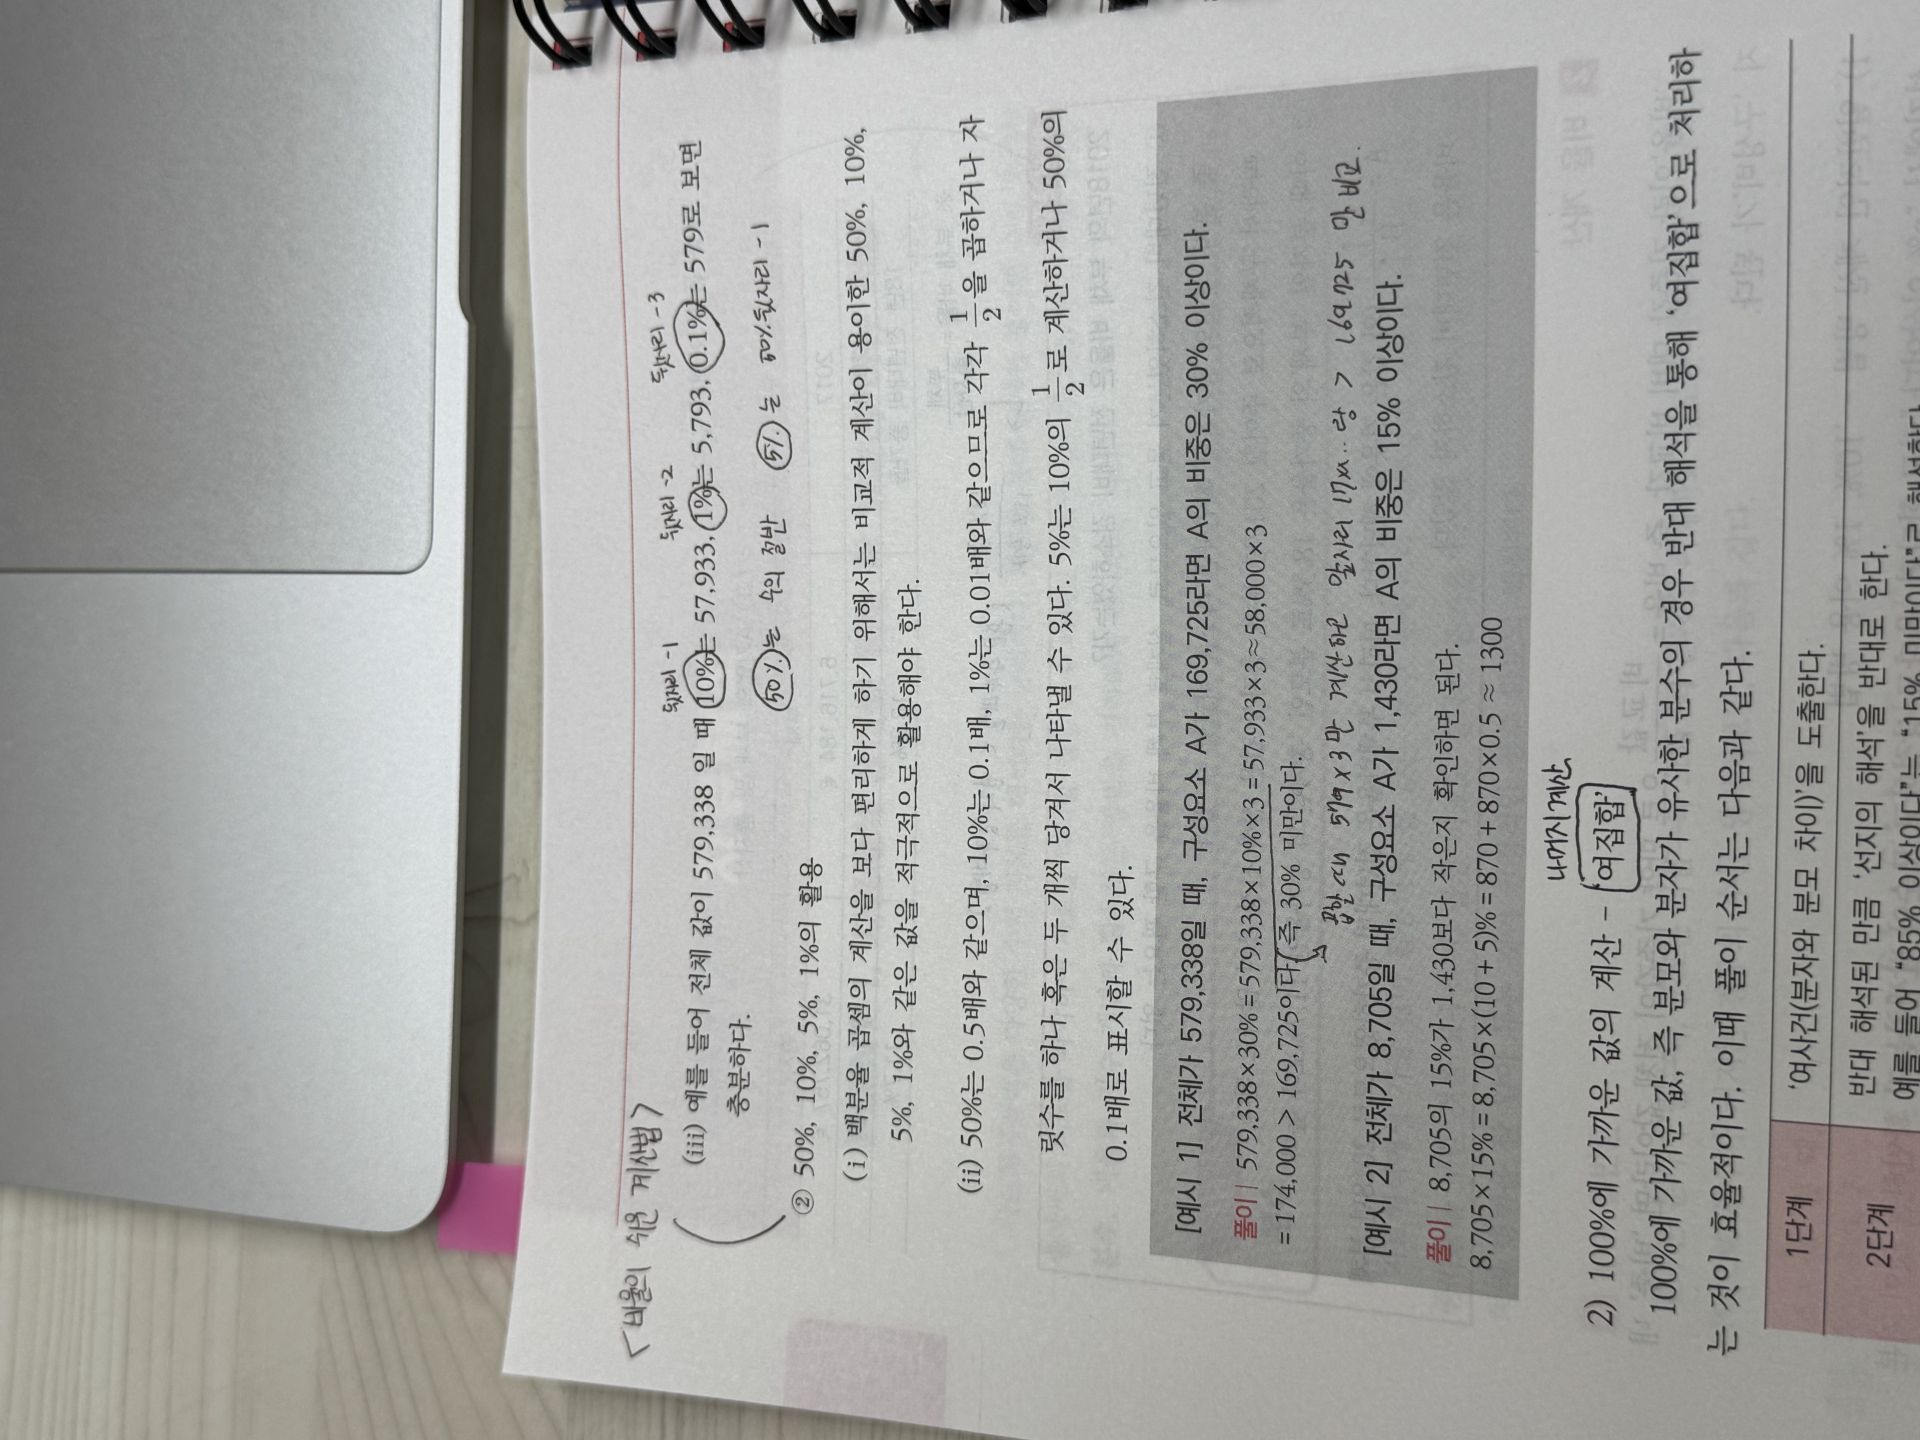 <비율의 쉬운 계산법>
뒷자리 -1 뒷자리 -2 뒷자리 -3
(iii) 예를 들어 전체 값이 579,338 일 때 10%는 57,933, 1%는 5,793, 0.1%는 579로 보면
충분하다.
50%는 수의 절반 5%는 50% 뒷자리 -1
② 50%, 10%, 5%, 1%의 활용
(i) 백분율 곱셈의 계산을 보다 편리하게 하기 위해서는 비교적 계산이 용이한 50%, 10%,
5%, 1%와 같은 값을 적극적으로 활용해야 한다.
(ii) 50%는 0.5배와 같으며, 10%는 0.1배, 1%는 0.01배와 같으므로 각각 1/2을 곱하거나 자
릿수를 하나 혹은 두 개씩 당겨서 나타낼 수 있다. 5%는 10%의 1/2로 계산하거나 50%의
0.1배로 표시할 수 있다.
[예시 1] 전체가 579,338일 때, 구성요소 A가 169,725라면 A의 비중은 30% 이상이다.
풀이 | 579,338×30% = 579,338×10%×3 = 57,933×3 ≈ 58,000×3
= 174,000 > 169,725이다(즉 30% 미만이다).
곱할 때 579×3만 계산하고 앞자리 17xx.. > 169725 만 비교.
[예시 2] 전체가 8,705일 때, 구성요소 A가 1,430라면 A의 비중은 15% 이상이다.
풀이 | 8,705의 15%가 1,430보다 작은지 확인하면 된다.
8,705×15% = 8,705×(10+5)% = 870+870×0.5 ≈ 1300
나머지계산
2) 100%에 가까운 값의 계산 - '여집합'
100%에 가까운 값, 즉 분모와 분자가 유사한 분수의 경우 반대 해석을 통해 '여집합'으로 처리하
는 것이 효율적이다. 이때 풀이 순서는 다음과 같다.
1단계 '여사건(분자와 분모 차이)'을 도출한다.
2단계 반대 해석된 만큼 '선지의 해석'을 반대로 한다.
예를 들어 "85% 이상이다"는 "15% 미만이다"로 해석한다.